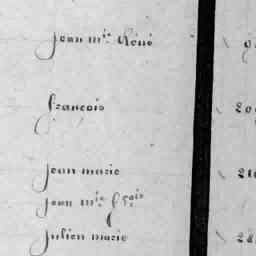 jean m.ie René
françois
jean marie
jean m.ie f.çois
julien marie